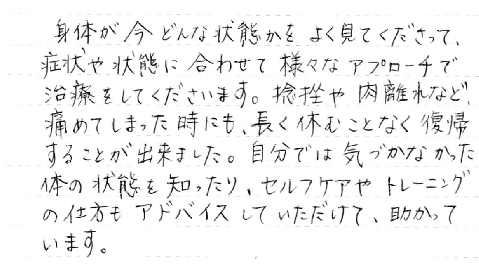 身体が今どんな状態かをよく見てくださって、
症状や状態に合わせて様々なアプローチで
治療をしてくださいます。捻挫や肉離れなど、
痛めてしまった時にも、長く休むことなく復帰
することが出来ました。自分では気づかなかった
体の状態を知ったり、セルフケアやトレーニング
の仕方もアドバイスしていただけて、助かって
います。